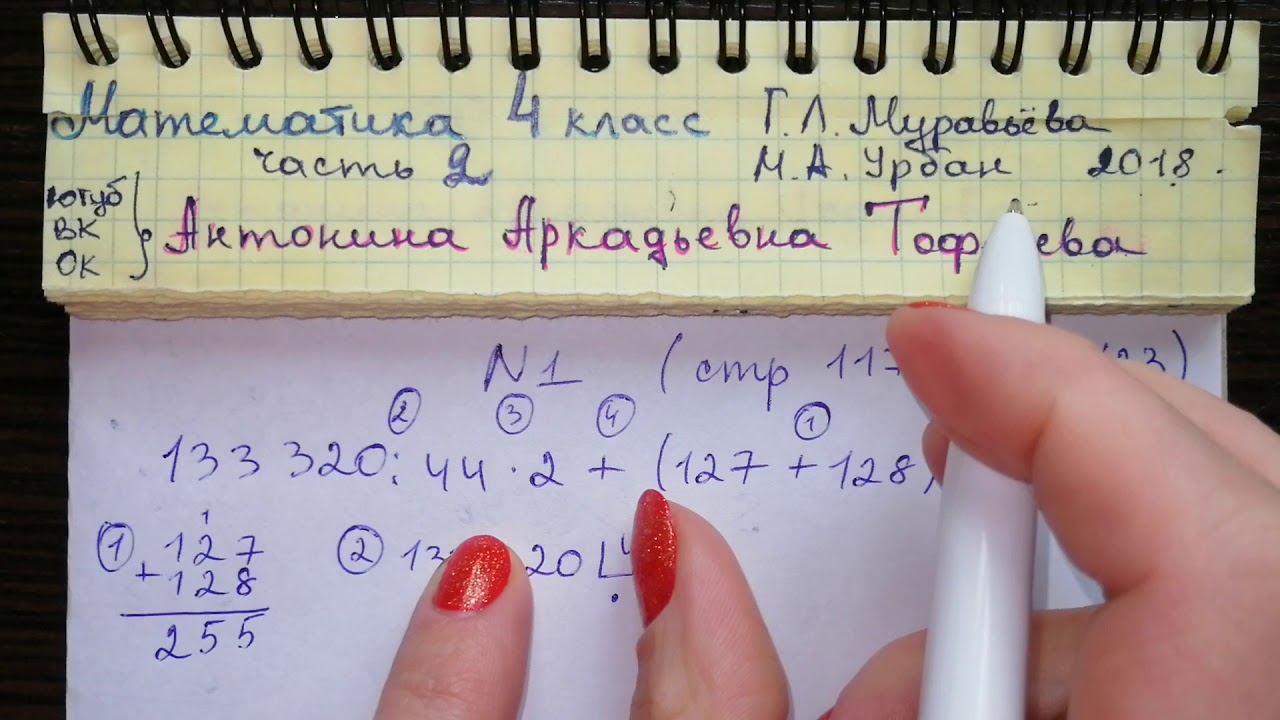 Математика 4 класс Г.Л. Муравьёва
часть 2 М.А. Урбан 2018.
Ютуб
ВК
ОК
Антонина Аркадьевна
N1 (стр
② ③ ④ ①
133 320 : 44 · 2 + (127 + 128)
① 1
127
+ 128
255
②